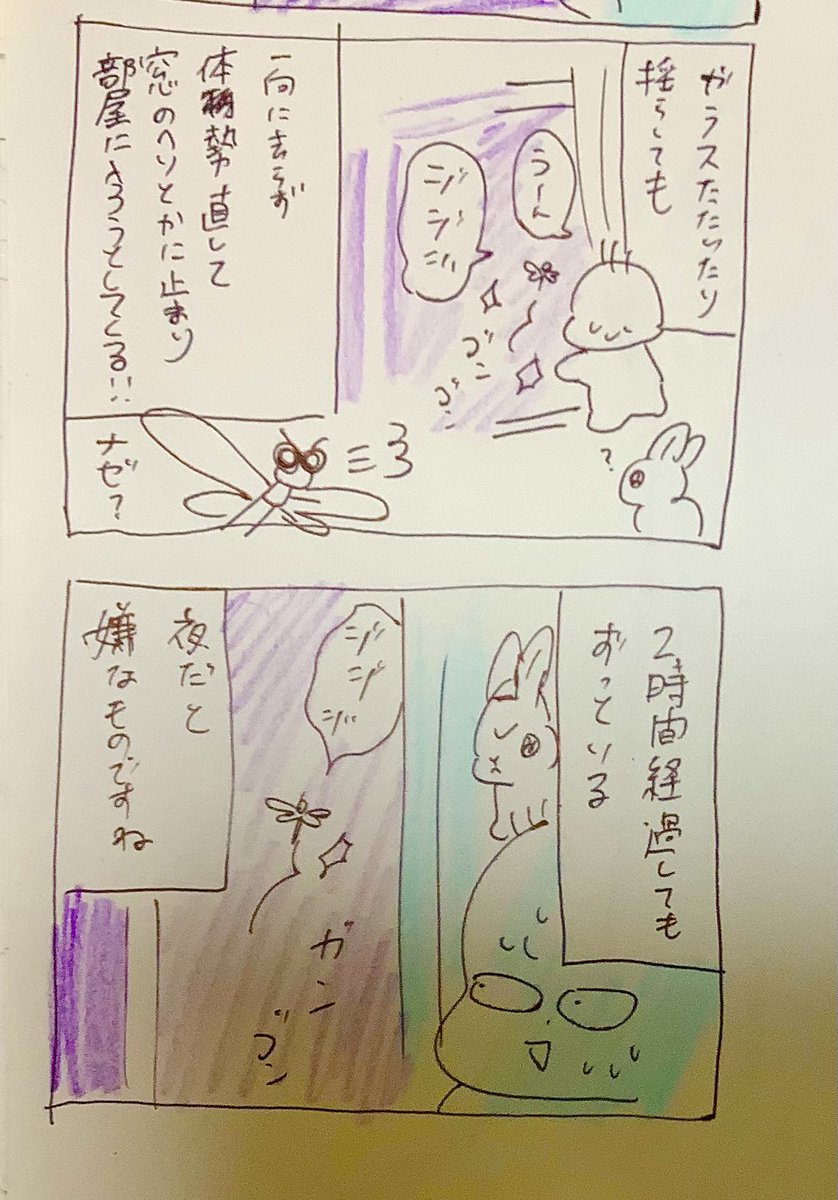 ガラスたたいたり
揺らしても
うーん
ジジジッ
ゴン
ゴン
一向に去らず
体勢直して
窓のヘリとかに止まり
部屋に入ろうとしてくる!!
?
ナゼ?
2時間経過しても
ずっている
ジジジ
ガン
ゴン
夜だと
嫌なものですね